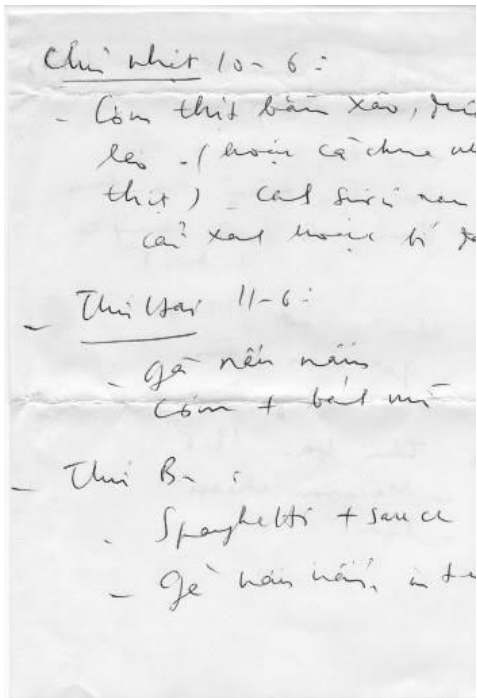 Chủ Nhật 10-6:
- Cơm thịt bằm xào, dưa
leo. (hoặc cà chua
thịt) canh
cải xanh hoặc bí
- Thứ Hai 11-6:
- gà nấu nấm
cơm + bánh mì
- Thứ Ba:
. Spaghetti + sauce
- gà nấu nấm,